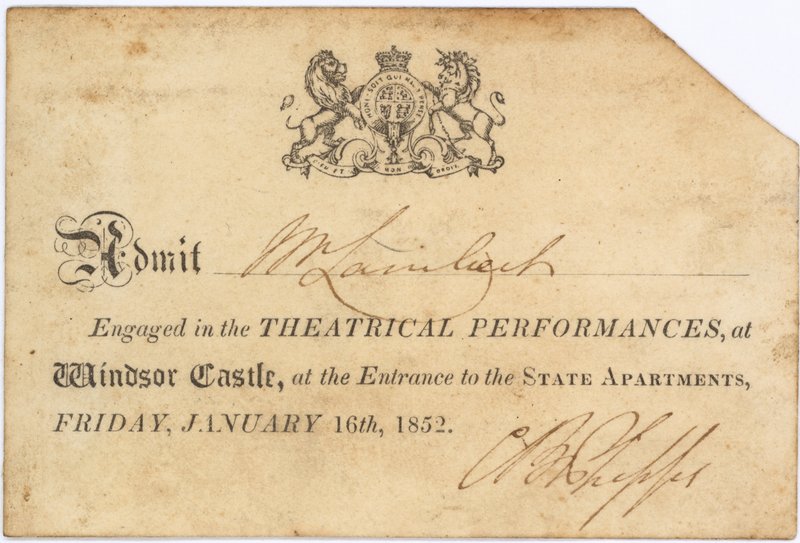 HONI SOIT QUI MAL Y PENSE
DIEU ET MON DROIT
Admit Mr Lambert
Engaged in the THEATRICAL PERFORMANCES, at
Windsor Castle, at the Entrance to the STATE APARTMENTS,
FRIDAY, JANUARY 16th, 1852.
C B Phipps